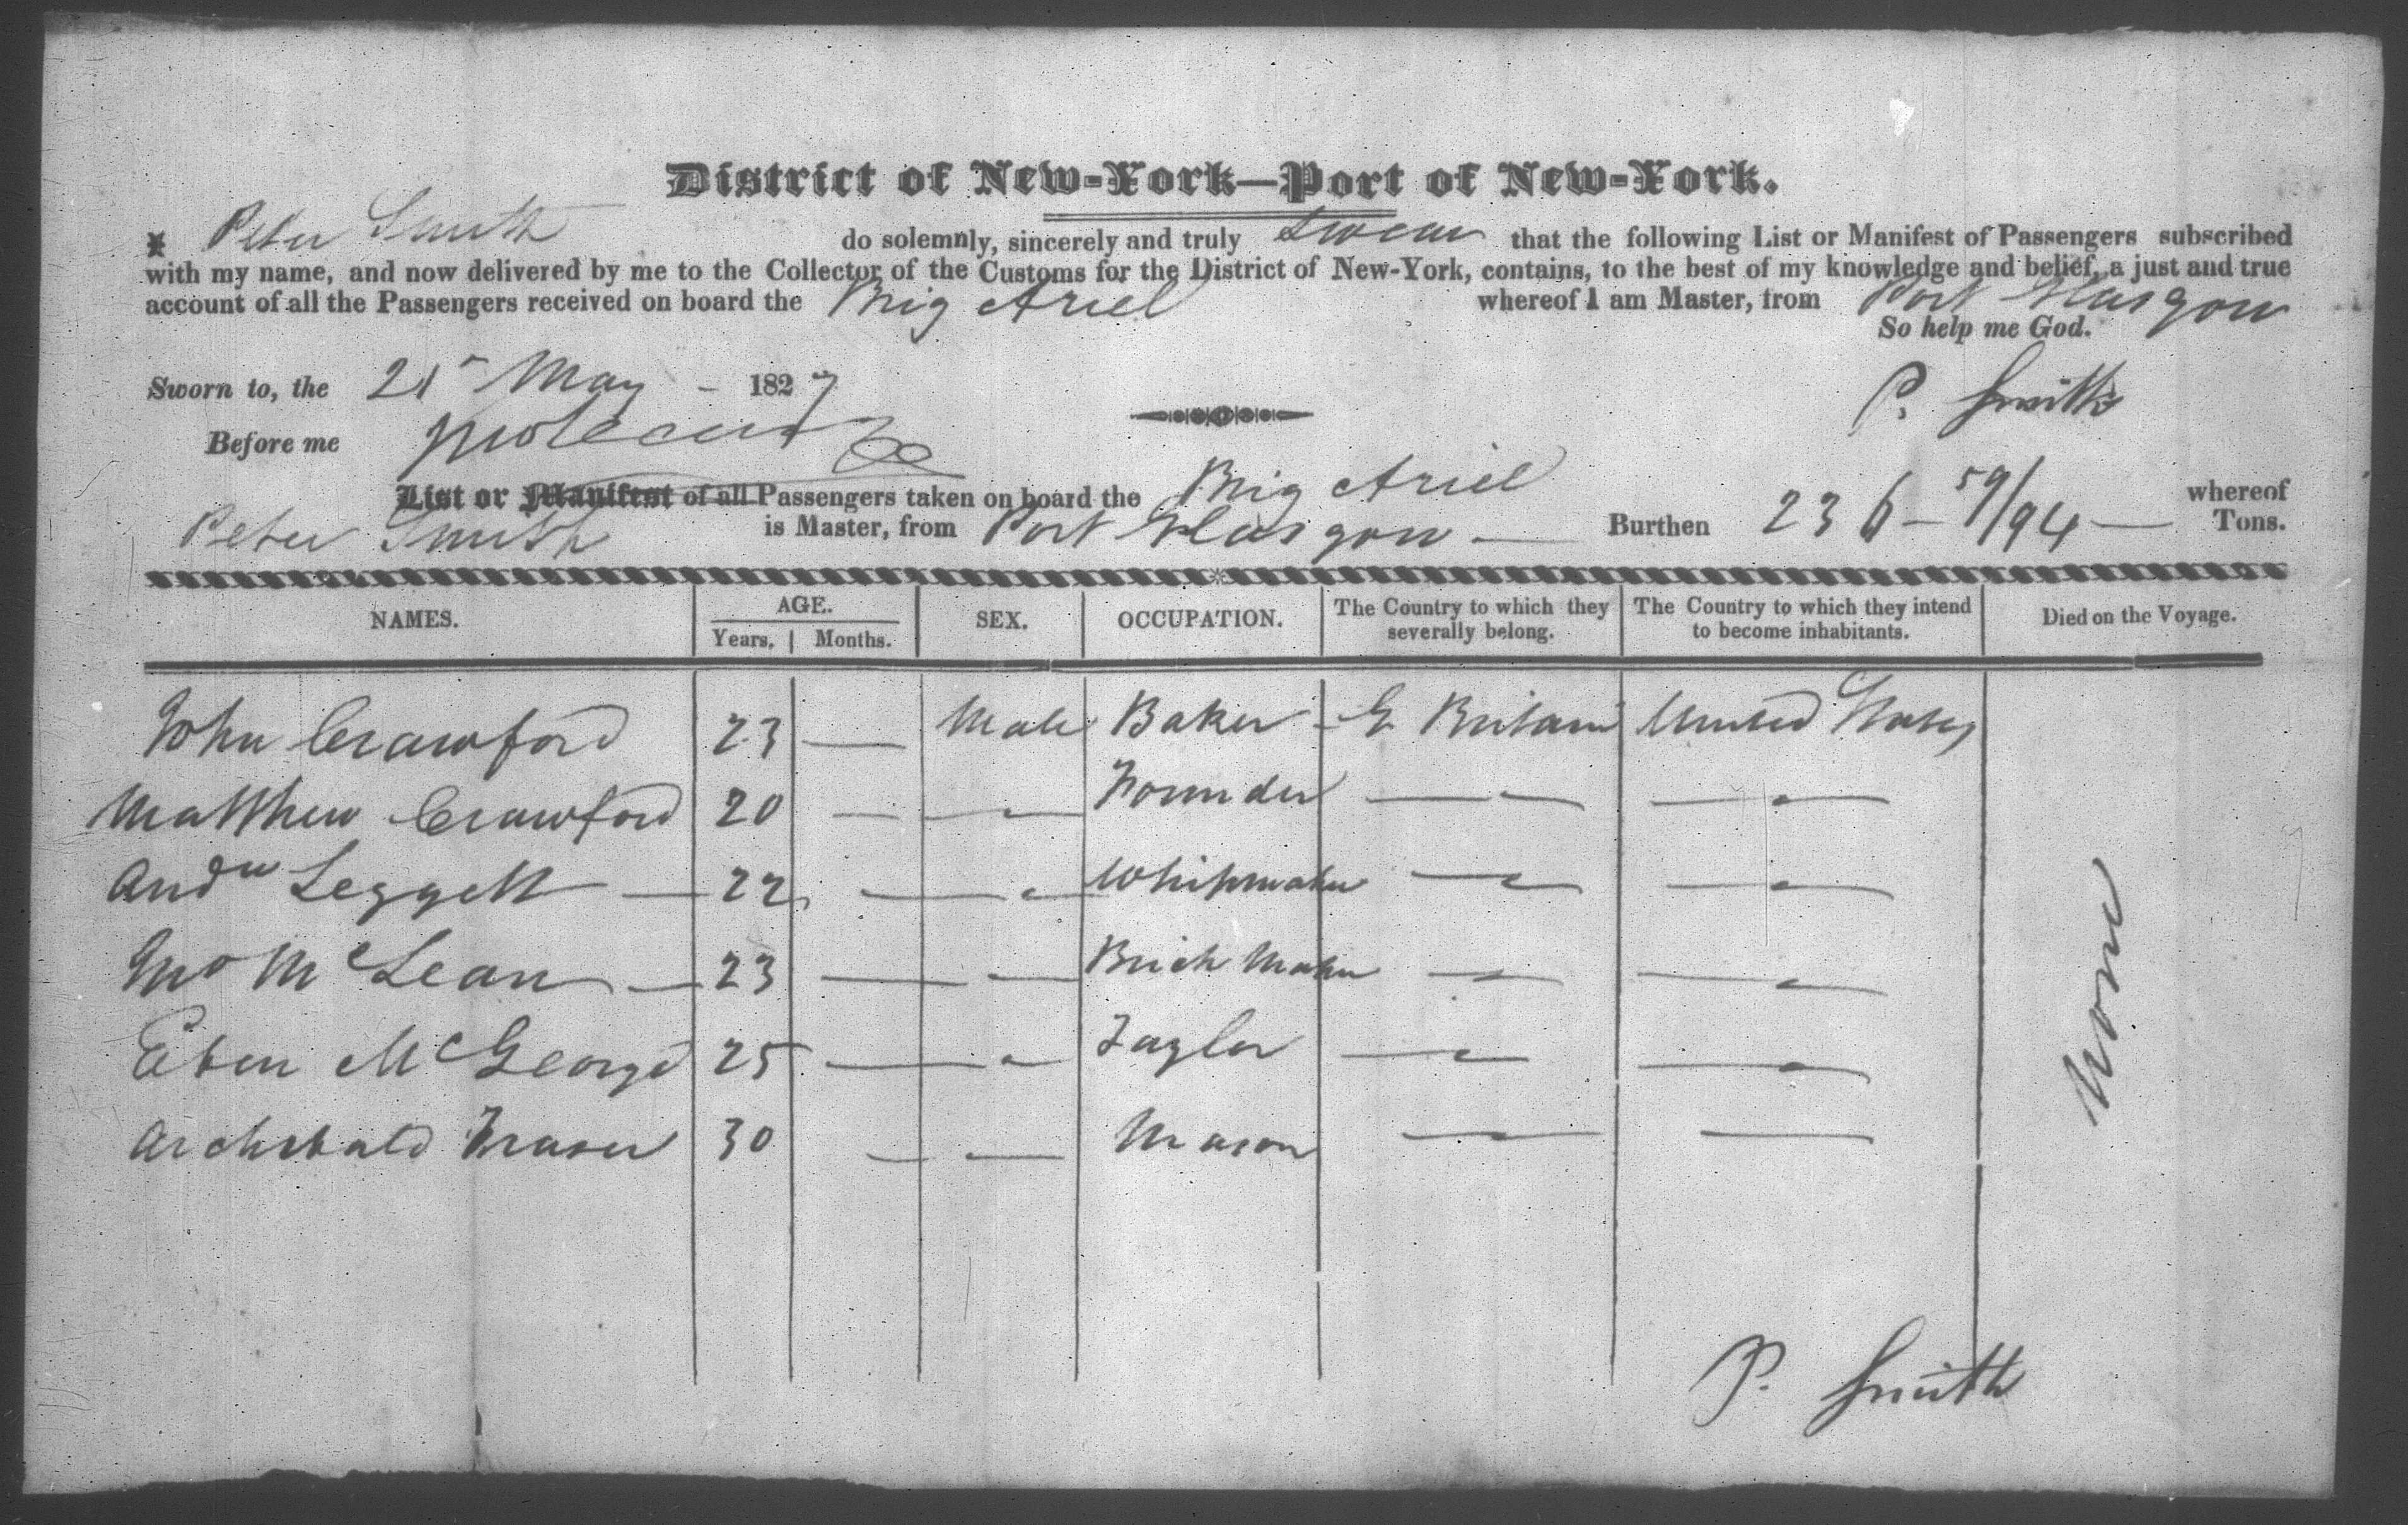 District of New-York—Port of New-York.
I Peter Smith do solemnly, sincerely and truly swear that the following List or Manifest of Passengers subscribed
with my name, and now delivered by me to the Collector of the Customs for the District of New-York, contains, to the best of my knowledge and belief, a just and true
account of all the Passengers received on board the Brig Ariel whereof I am Master, from Port Glasgow
So help me God.
Sworn to, the 21 May - 1827 P. Smith
Before me
List or Manifest of all Passengers taken on board the Brig Ariel whereof
Peter Smith is Master, from Port Glasgow — Burthen 236 - 59/94 — Tons.
NAMES. AGE. SEX. OCCUPATION. The Country to which they severally belong. The Country to which they intend to become inhabitants. Died on the Voyage.
Years. Months.
John Crawford 23 — Male Baker - G Britain United States
Matthew Crawford 20 — — Founder — —
Andw Leggett — 22 — — Whipmaker — —
Jno McLean — 23 — — Brick Maker — —
Eben McGeorge 25 — — Taylor — —
Archibald Fraser 30 — — Mason — —
None
P. Smith